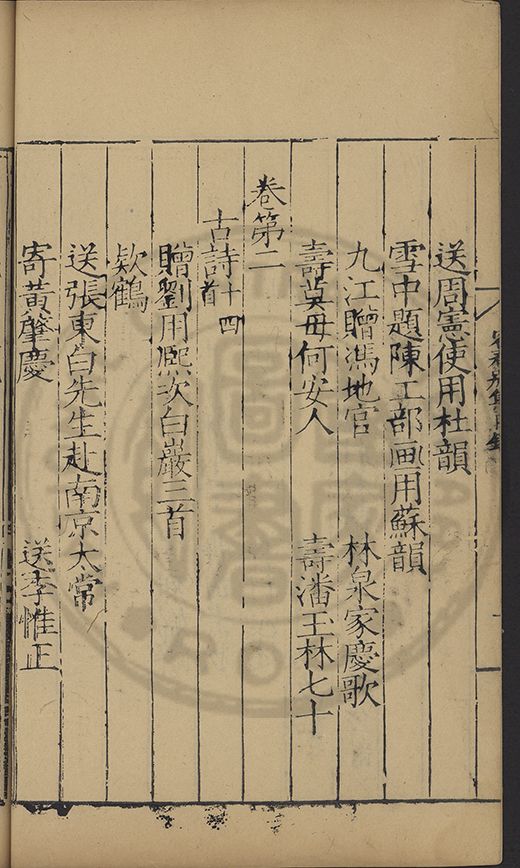 送周憲使用杜韻
雪中題陳工部画用蘇韻
九江贈馮地官　林泉家慶歌
壽莫母何安人　壽潘玉林七十
卷第二
古詩十四首
贈劉用熈次白巖三首
欵鶴
送張東白先生赴南京太常
寄黄肇慶　送李惟正